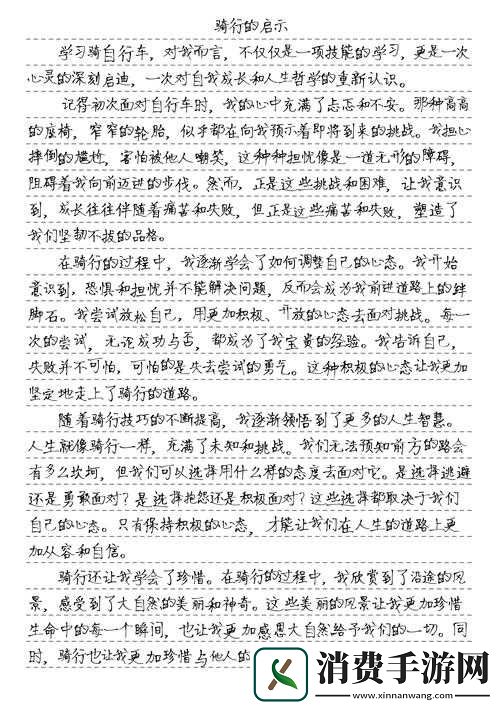 骑行的启示
学习骑自行车，对我而言，不仅仅是一项技能的学习，更是一次
心灵的深刻启迪，一次对自我成长和人生哲学的重新认识。
记得初次面对自行车时，我的心中充满了忐忑和不安。那种高高
的座椅，窄窄的轮胎，似乎都在向我预示着即将到来的挑战。我担心
摔倒的尴尬，害怕被他人嘲笑，这种种担忧像是一道无形的障碍，
阻碍着我向前迈进的步伐。然而，正是这些挑战和困难，让我意识
到，成长往往伴随着痛苦和失败，但正是这些痛苦和失败，塑造了
我们坚韧不拔的品格。
在骑行的过程中，我逐渐学会了如何调整自己的心态。我开始
意识到，恐惧和担忧并不能解决问题，反而会成为我前进道路上的绊
脚石。我尝试放松自己，用更加积极、开放的心态去面对挑战。每一
次的尝试，无论成功与否，都成为了我宝贵的经验。我告诉自己，
失败并不可怕，可怕的是失去尝试的勇气。这种积极的心态让我更加
坚定地走上了骑行的道路。
随着骑行技巧的不断提高，我逐渐领悟到了更多的人生智慧。
人生就像骑行一样，充满了未知和挑战。我们无法预知前方的路会
有多么坎坷，但我们可以选择用什么样的态度去面对它。是选择逃避
还是勇敢面对？是选择抱怨还是积极面对？这些选择都取决于我们
自己的心态。只有保持积极的心态，才能让我们在人生的道路上更
加从容和自信。
骑行还让我学会了珍惜。在骑行的过程中，我欣赏到了沿途的风
景，感受到了大自然的美丽和神奇。这些美丽的风景让我更加珍惜
生命中的每一个瞬间，也让我更加感恩大自然给予我们的一切。同
时，骑行也让我更加珍惜与他人的
消费手游网
www.xinnanwang.com